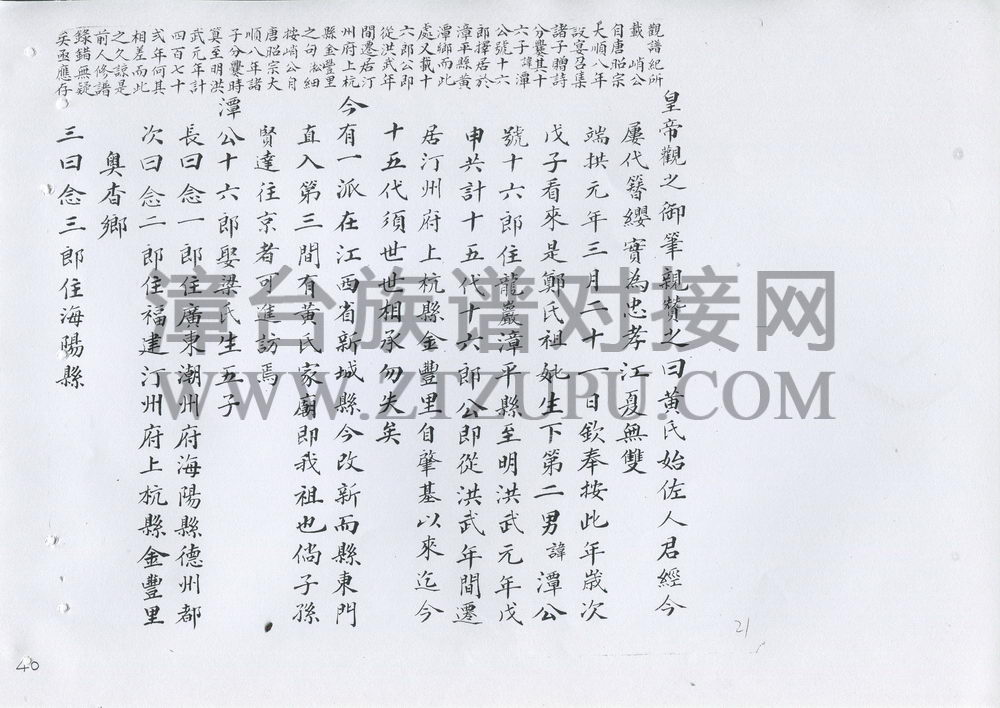 觀譜紀所
載峭公
自唐昭宗
天順八年
設宴召集
諸子贈詩
分爨其十
六子諱潭
公號十六
郎擇居於
漳平縣黃
潭鄉而此
處又載十
六郎公即
從洪武年
間遷居汀
州府上杭
縣金豐里
之句淞細
按峭公自
唐昭宗大
順八年諸
子分爨時
算至明洪
武元年計
四百七十
弍年何其
相差而此
之久諒是
前人修譜
錄錯無疑
矣亟應存
皇帝觀之御筆親贊之曰黃氏始佐人君經今
屢代簪纓實為忠孝江夏無雙
端拱元年三月二十一日欽奉按此年歲次
戊子看來是鄭氏祖妣生下第二男諱潭公
號十六郎住龍巖漳平縣至明洪武元年戊
申共計十五代十六郎公即從洪武年間遷
居汀州府上杭縣金豐里自肇基以來迄今
十五代須世世相承勿失矣
今有一派在江西省新城縣今改新而縣東門
直入第三間有黃氏家廟即我祖也倘子孫
賢達往京者可進訪焉
潭公十六郎娶梁氏生五子
長曰念一郎住廣東潮州府海陽縣德州都
次曰念二郎住福建汀州府上杭縣金豐里
奧杏鄉
三曰念三郎住海陽縣
漳台族谱对接网
WWW.ZTZUPU.COM
21
46